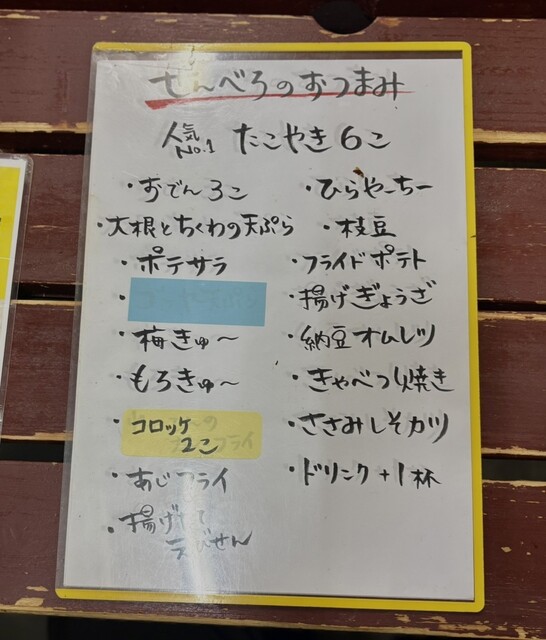 せんべろのおつまみ
人気No.1 たこやき6こ
・おでん3こ
・大根とちくわの天ぷら
・ポテサラ
・
・梅きゅ〜
・もろきゅ〜
・コロッケ
2こ
・あじフライ
・揚げ
えびせん
・ひらやーちー
・枝豆
・フライドポテト
・揚げぎょうざ
・納豆オムレツ
・きゃべつ焼き
・ささみしそカツ
・ドリンク+1杯